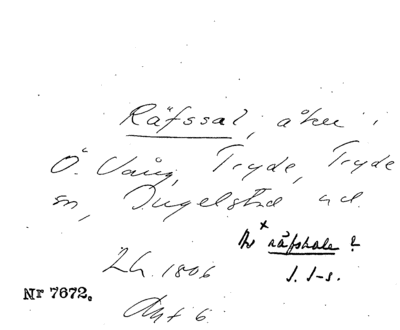 Räfssal, åker i
Ö. Vång, Tryde, Tryde
sn, Ingelstad hd.
Av * räfshale?
Lh. 1806
J. S-s.
Nr 7672.
Akt 6